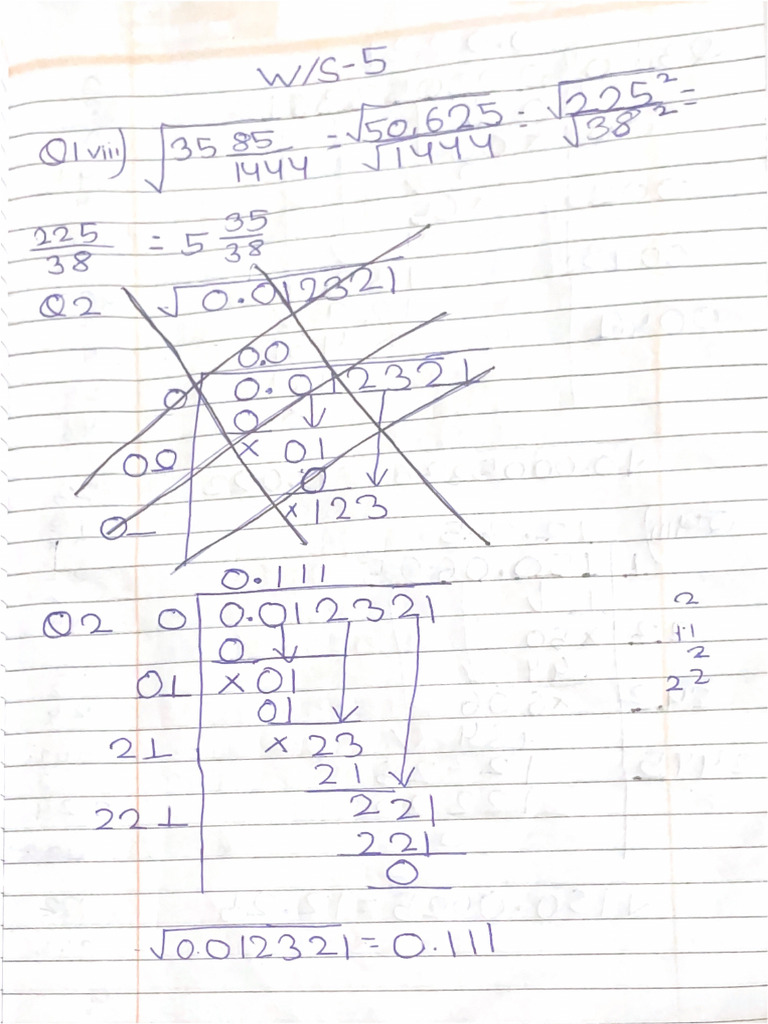 W/S-5
Q1 viii) √35 85/1444 = √50,625/√1444 = √225²/√38² =
225/38 = 5 35/38
Q2 √0.012321
0.0
0 0.012321
0
00 × 01
0
0_ × 123
0.111
Q2 0 0.012321
0
01 × 01
01
21 × 23
21
221 221
221
0
√0.012321 = 0.111
2
2
22